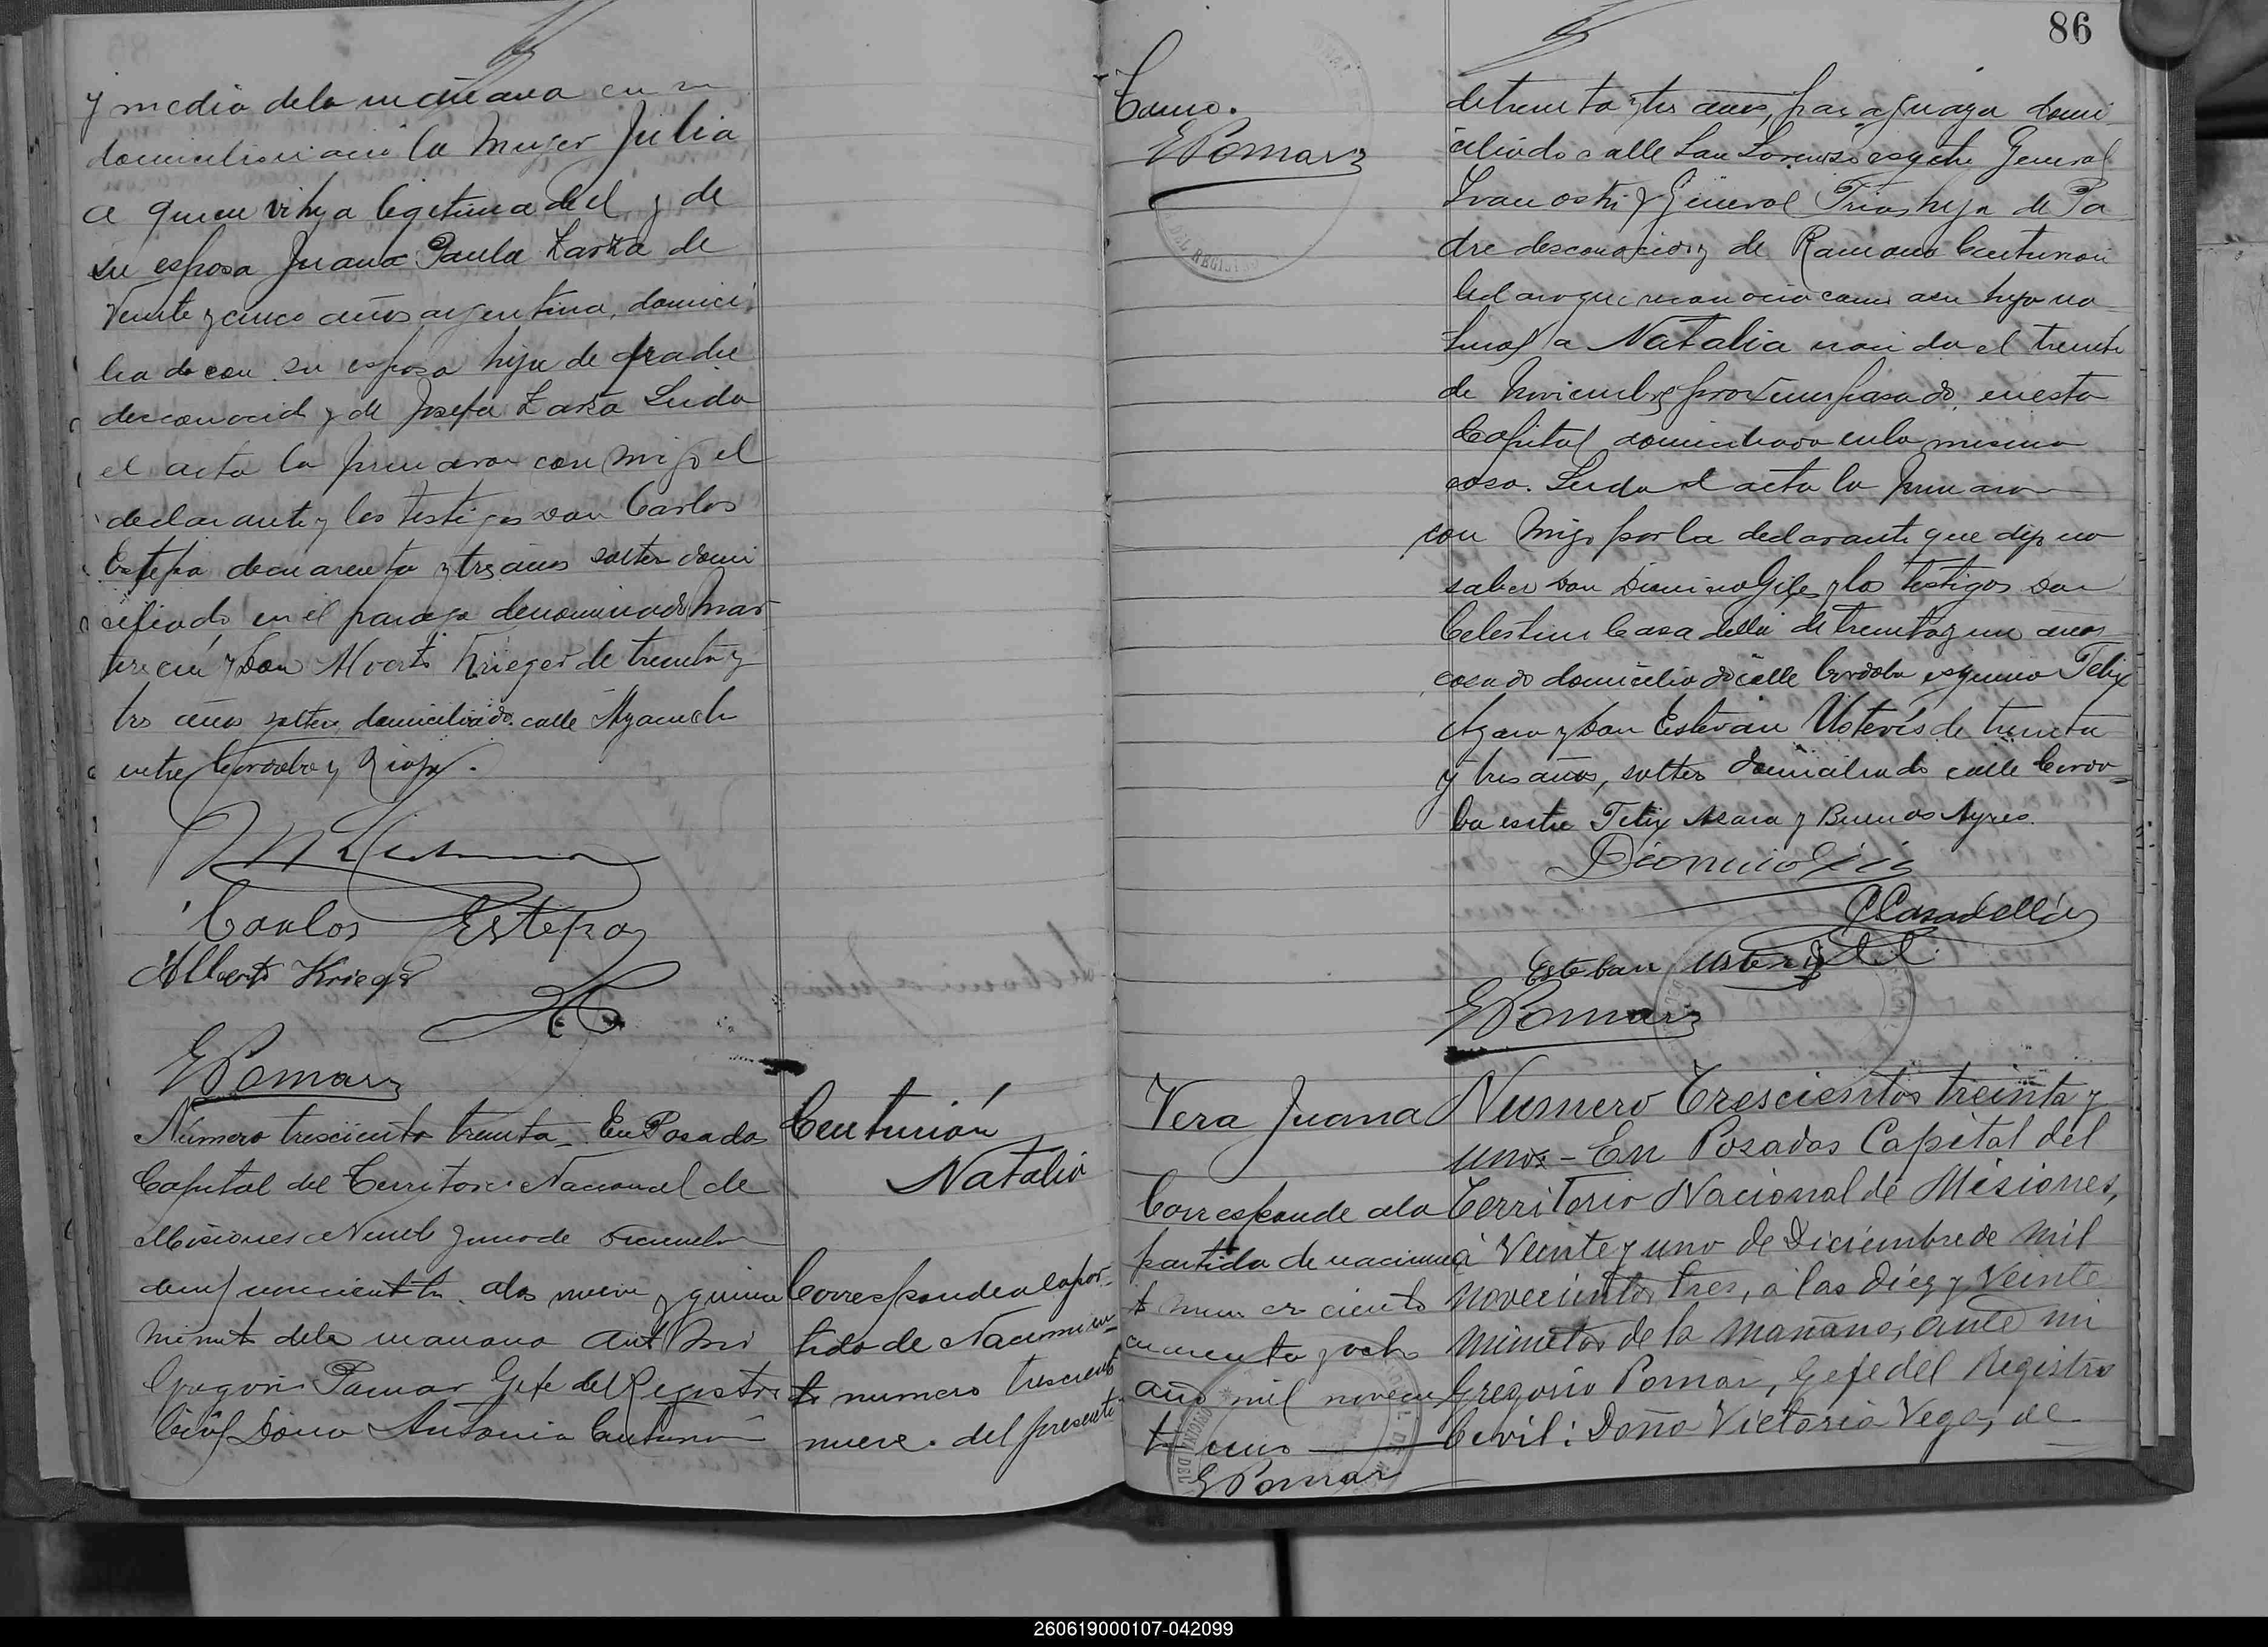 y media de la mañana en su
domicilio nació la mujer Julia
a quien vi hija legitima de el y de
su esposa Juana Paula Zarza de
veinte y cinco años argentina, domici
liada con su esposo hija de padre
desconocid y de Josefa Zarza Leida
el acta la firmaron con migo el
declarante y los testigos Don Carlos
Estepa de cuarenta y tres años soltero domi
ciliado en el paraje denominado Mar
tires y Don Alberto Krieger de treinta y
tres años soltero, domiciliado calle Ayacucho
entre Cordoba y Rioja.
Carlos Estepa
Alberto Krieger
G Pomar
Número trescientos treinta - En Posadas
Capital del Territorio Nacional de
Misiones a Veinte y uno de Diciembre
de mil novecientos tres a las nueve y quince
minutos de la mañana ante mi
Gregorio Pomar Gefe del Registro
Civil Doña Antonia Centurión
Centurión
Natalia
Corresponde a la par-
tida de Nacimien-
to numero trescientos
nueve. del presente
86
Tomo.
G Pomar
DEL REGISTRO
de treinta y tres años, paraguaya domi
ciliada calle San Lorenzo esqte General
y General Frias hija de Pa
dre desconocido y de Ramona Centurion
declaro que reconocia como a su hija na
tural a Natalia nacida el treinta
de Noviembre proximo pasado, en esta
Capital domiciliada en la misma
casa. Leida el acta la firmaron
con migo por la declarante que dijo no
saber Don Dionicio Gil y los testigos Don
Celestino Casadellá de treinta y un años
casado domiciliado calle Cordoba esquina Felix
Azara y Don Estevan Ustevis de treinta
y tres años, soltero domiciliado calle Cordo-
ba entre Felix Azara y Buenos Ayres.
Dionicio Gil
C Casadellá
Esteban
G Pomar
Vera Juana
Corresponde a la
partida de nacimien
to numero ciento
cincuenta y ocho
año mil novecien
tos uno
G Pomar
Numero Trescientos treinta y
uno - En Posadas Capital del
Territorio Nacional de Misiones,
á Veinte y uno de Diciembre de mil
novecientos tres, á las diez y veinte
minutos de la mañana, ante mi
Gregorio Pomar, Gefe del Registro
Civil: Doña Victoria Vega, de
260619000107-042099